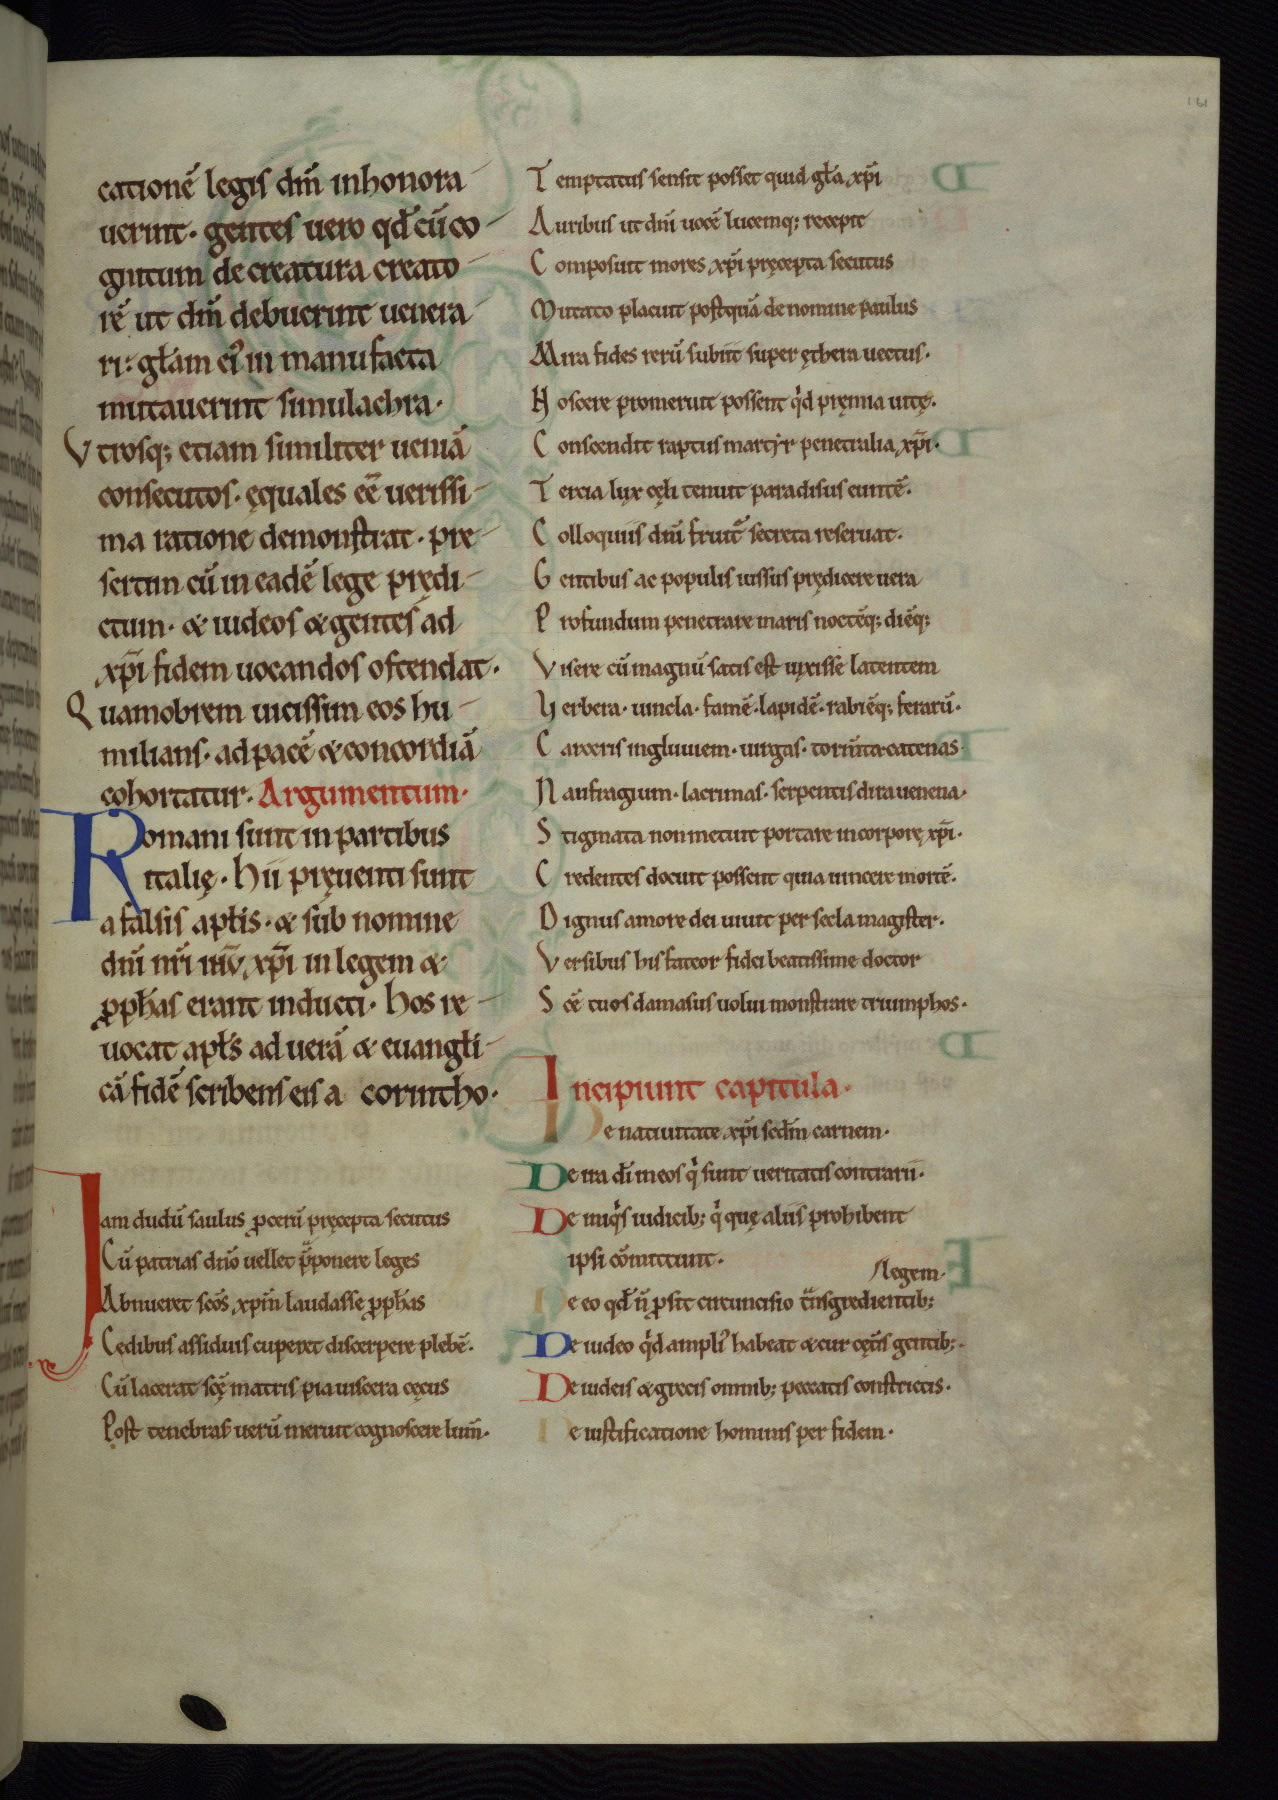 161
cationē legis dm̄ inhonora
uerint. gentes uero qd̄ cū co
gnitum de creatura creato
rē ut dm̄ debuerint uenera
ri: głam ei' in manufacta
mutauerint simulachra.
Vtrosq; etiam similiter ueniā
consecutos. ęquales eē uerissi
ma ratione demonstrat. pre
sertim cū in eadē lege prędi
ctum. & iudeos & gentes ad
xp̄i fidem uocandos ostendat.
Quamobrem uicissim eos hu
milians. ad pacē & concordiā
cohortatur. Argumentum.
Romani sunt in partibus
italię. hii pręuenti sunt
a falsis apłis. & sub nomine
dni̅ nr̄i ihv̄ xp̄i in legem &
ꝓpħas erant inducti. hos re
uocat apłs ad uerā & euangłi
cā fidē scribens eis a corintho.
Iam dudū saulus ꝓcerū pręcepta secutus
Cū patrias dn̄o uellet p̄ponere leges
Abnueret scōs xpm̄ laudasse ꝓpħas
Cedibus assiduis cuperet discerpere plebē.
Cū lacerat scę̄ matris pia uiscera cęcus
Post tenebras uerū meruit cognoscere lum̄.
Temptatus sensit posset quid gła xp̄i
Auribus ut dni̅ uocē lucemq; recepit
Composuit mores xp̄i pręcepta secutus
Mutato placuit postquā de nomine paulus
Mira fides rerū subiit super ęthera uectus.
Noscere promeruit possent qͥd pręmia uitę.
Conscendit raptus martyr penetralia xp̄i.
Tercia lux cęli tenuit paradisus euntē.
Colloquiis dni̅ fruit᷑ secreta reseruat.
Gentibus ac populis iussus prędicere uera
Profundum penetrare maris noctēq; diēq;
Visere cū magnū satis est uixisse latentem
Verbera. uincla. famē. lapidē. rabiēq; ferarū.
Carceris ingluuiem. uirgas. torm̄ta catenas.
Naufragium. lacrimas. serpentis dira uenena.
Stigmata non metuit portare in corpore xp̄i.
Credentes docuit possent qua uincere mortē.
Dignus amore dei uiuit per secla magister.
Versibus his fateor fidei beatissime doctor
Scē tuos damasus uolui monstrare triumphos.
Incipiunt capitula.
De natiuitate xp̄i scdm̄ carnem.
De ira di̅ in eos qͥ sunt ueritatis contrarii.
De iniqͥs iudicib; qͥ quę aliis prohibent
ipsi cōmittunt.
legem.
De eo qd̄ n̄ ꝓsit circuncisio tͣnsgredientib;
De iudeo qͥd ampli' habeat & cur cęt̄is gentib;.
De iudeis & grecis omnib; peccatis constrictis.
De iustificatione hominis per fidem.